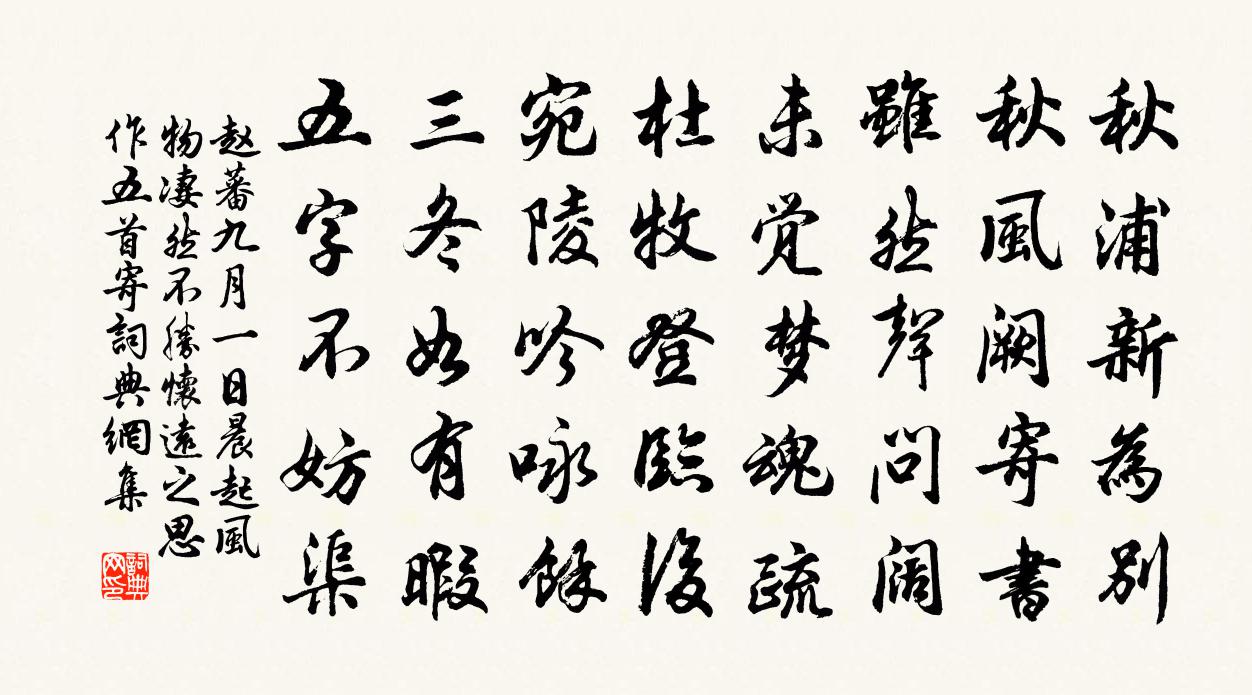 秋浦新為别
秋風闕寄書
雖然聲問闊
未觉梦魂疏
杜牧登臨後
宛陵吟咏餘
三冬如有暇
五字不妨渠
赵蕃九月一日晨起風
物凄然不勝懷遠之思
作五首寄詞典網集
詞典网印